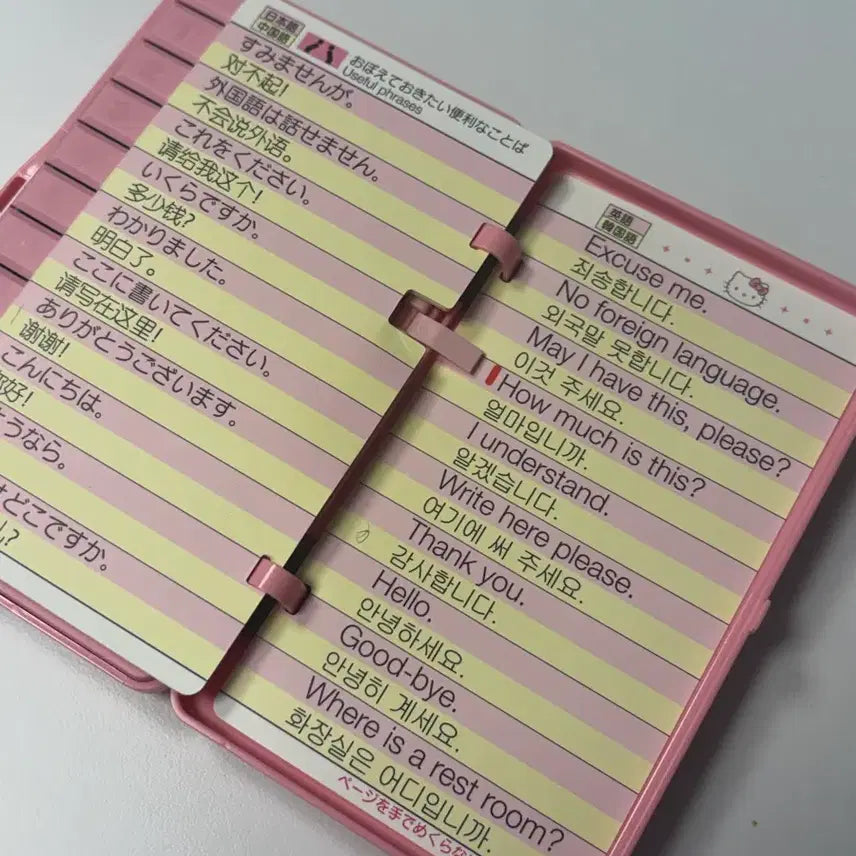 日本語
中国語
ハ
おぼえておきたい便利なことば
Useful phrases
すみませんが。
对不起!
外国語は話せません。
不会说外语。
これをください。
请给我这个!
いくらですか。
多少钱?
わかりました。
明白了。
ここに書いてください。
请写在这里!
ありがとうございます。
谢谢!
こんにちは。
好!
うなら。
どこですか。
?
英語
韓国語
Excuse me.
죄송합니다.
No foreign language.
외국말 못합니다.
May I have this, please?
이것 주세요.
How much is this?
얼마입니까.
I understand.
알겠습니다.
Write here please.
여기에 써 주세요.
Thank you.
감사합니다.
Hello.
안녕하세요.
Good-bye.
안녕히 계세요.
Where is a rest room?
화장실은 어디입니까.
ページを手でめくらな